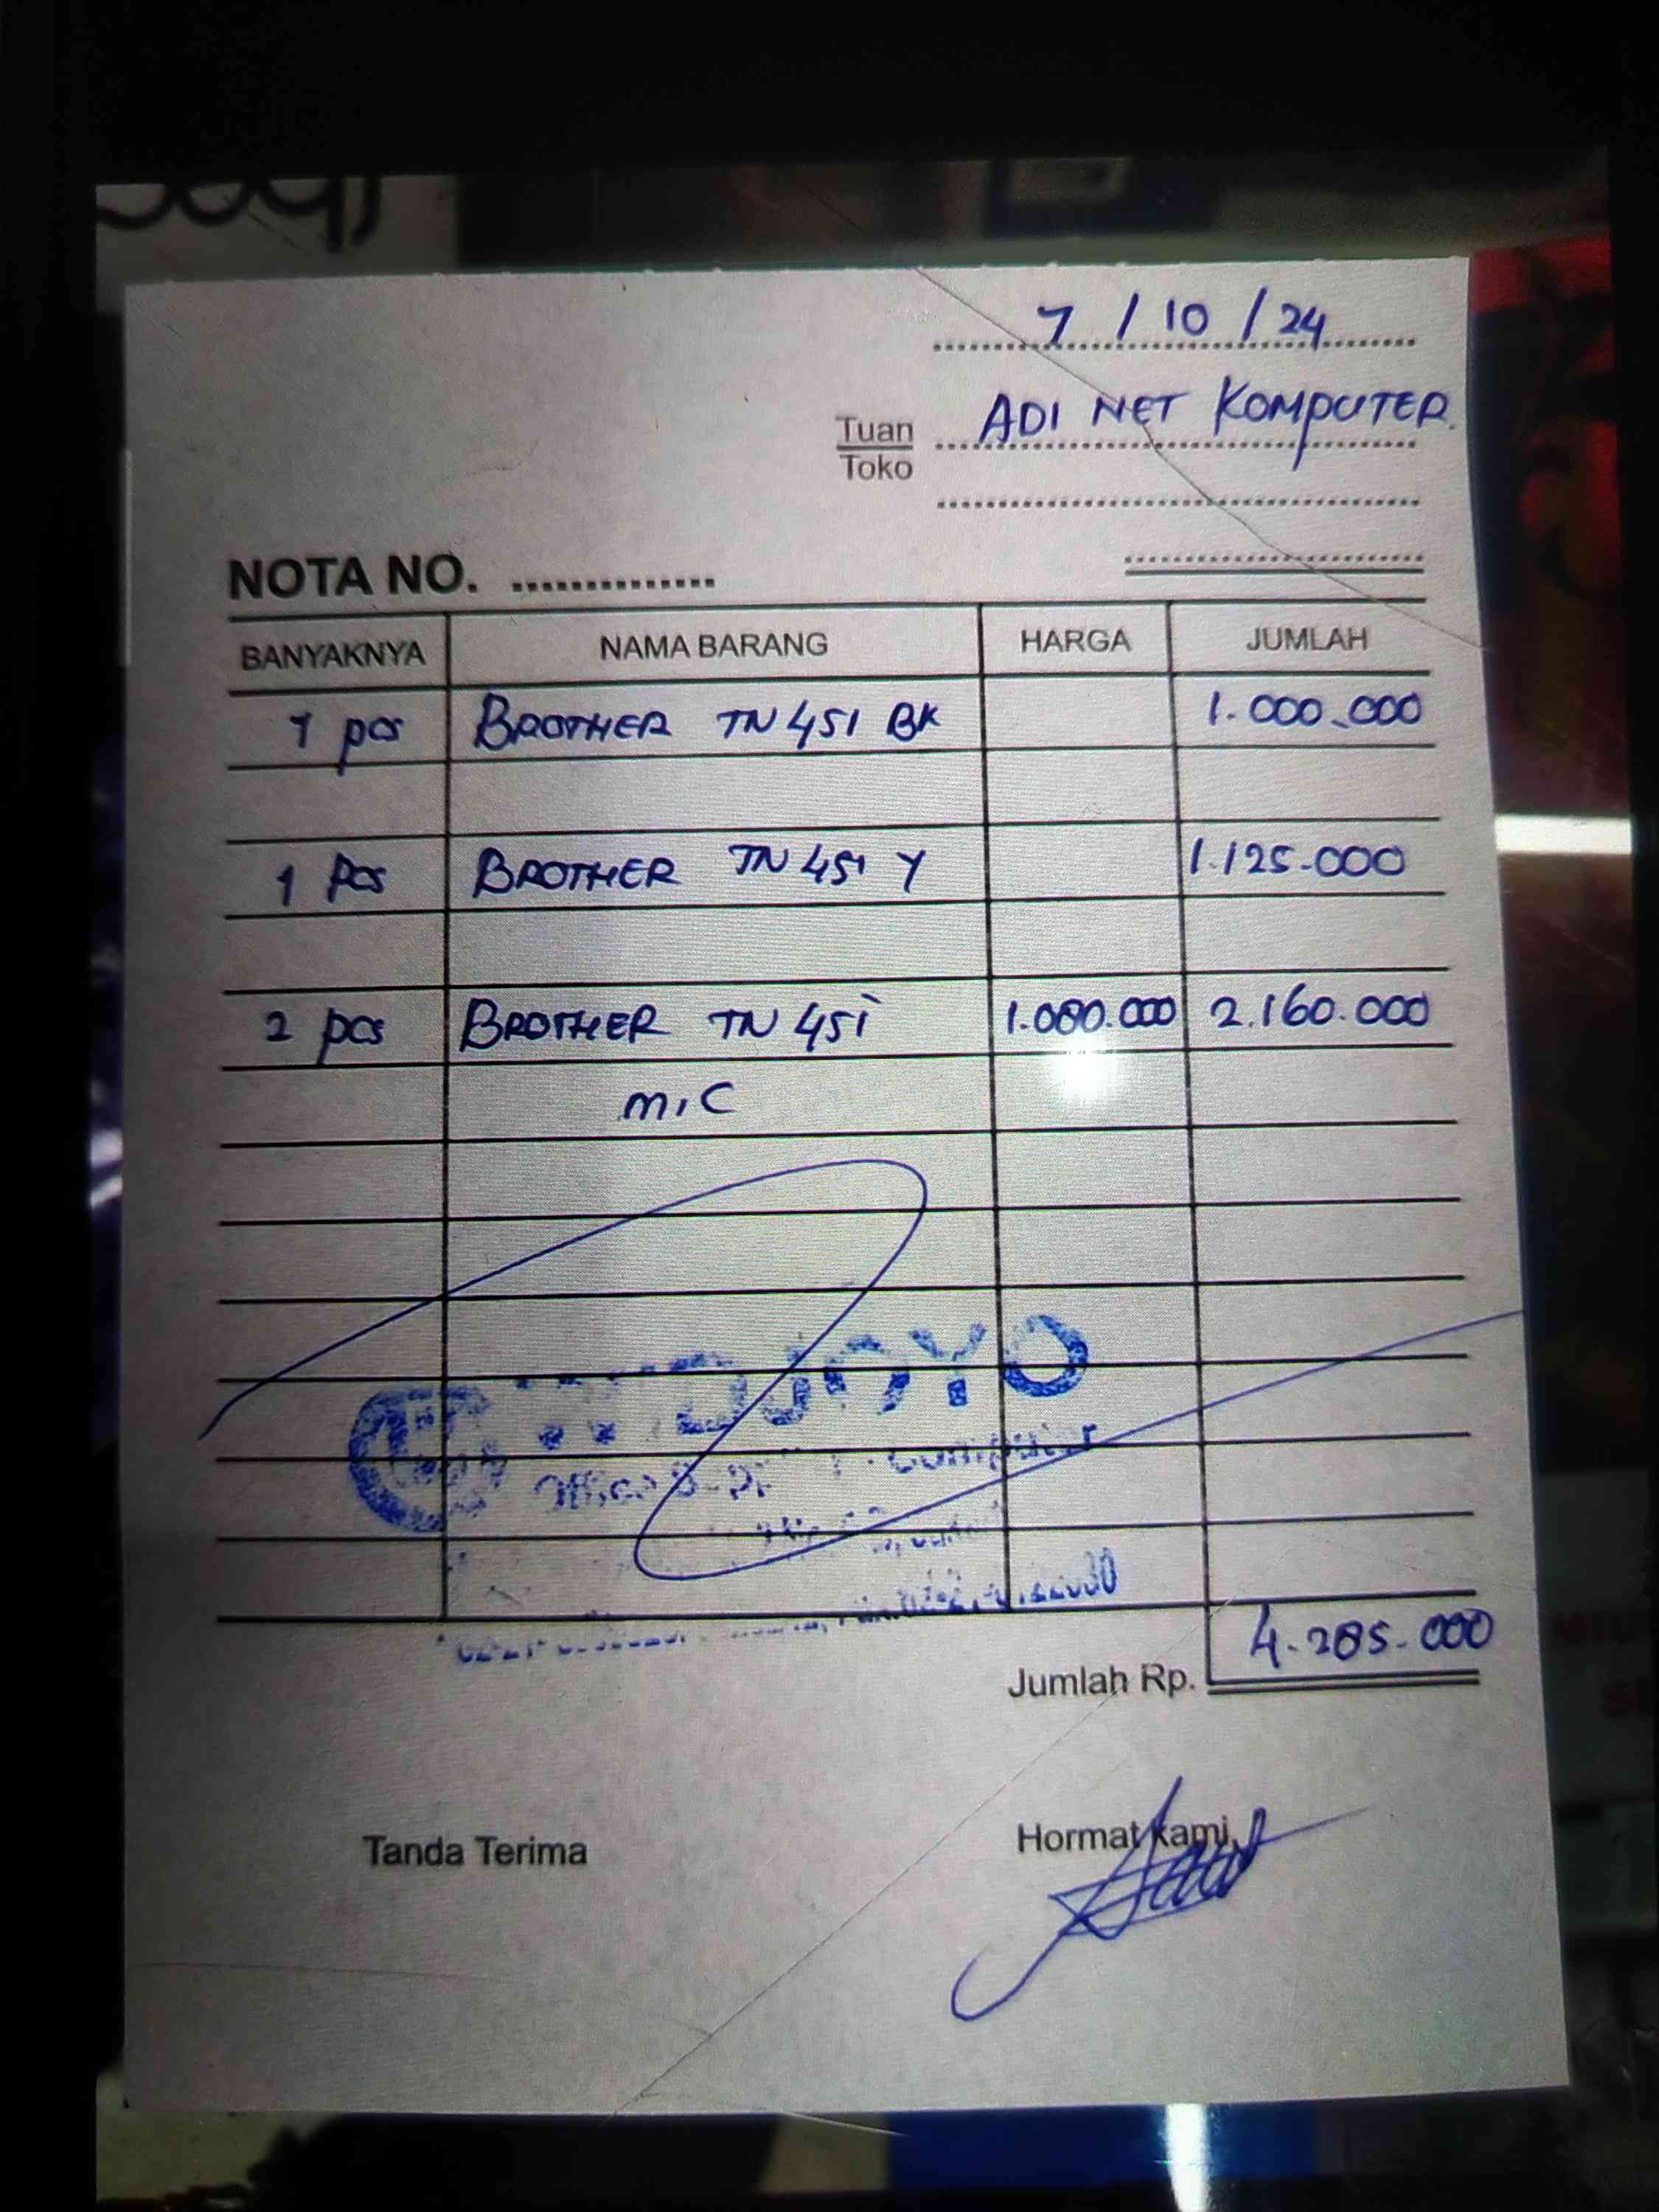 7 / 10 / 24
Tuan ADI NET KOMPUTER.
Toko
NOTA NO.
BANYAKNYA NAMA BARANG HARGA JUMLAH
1 pcs BROTHER TN 451 BK 1.000.000
1 Pcs BROTHER TN 451 Y 1.125.000
2 pcs BROTHER TN 451 1.080.000 2.160.000
m, C
Jumlah Rp. 4.285.000
Tanda Terima Hormat kami,